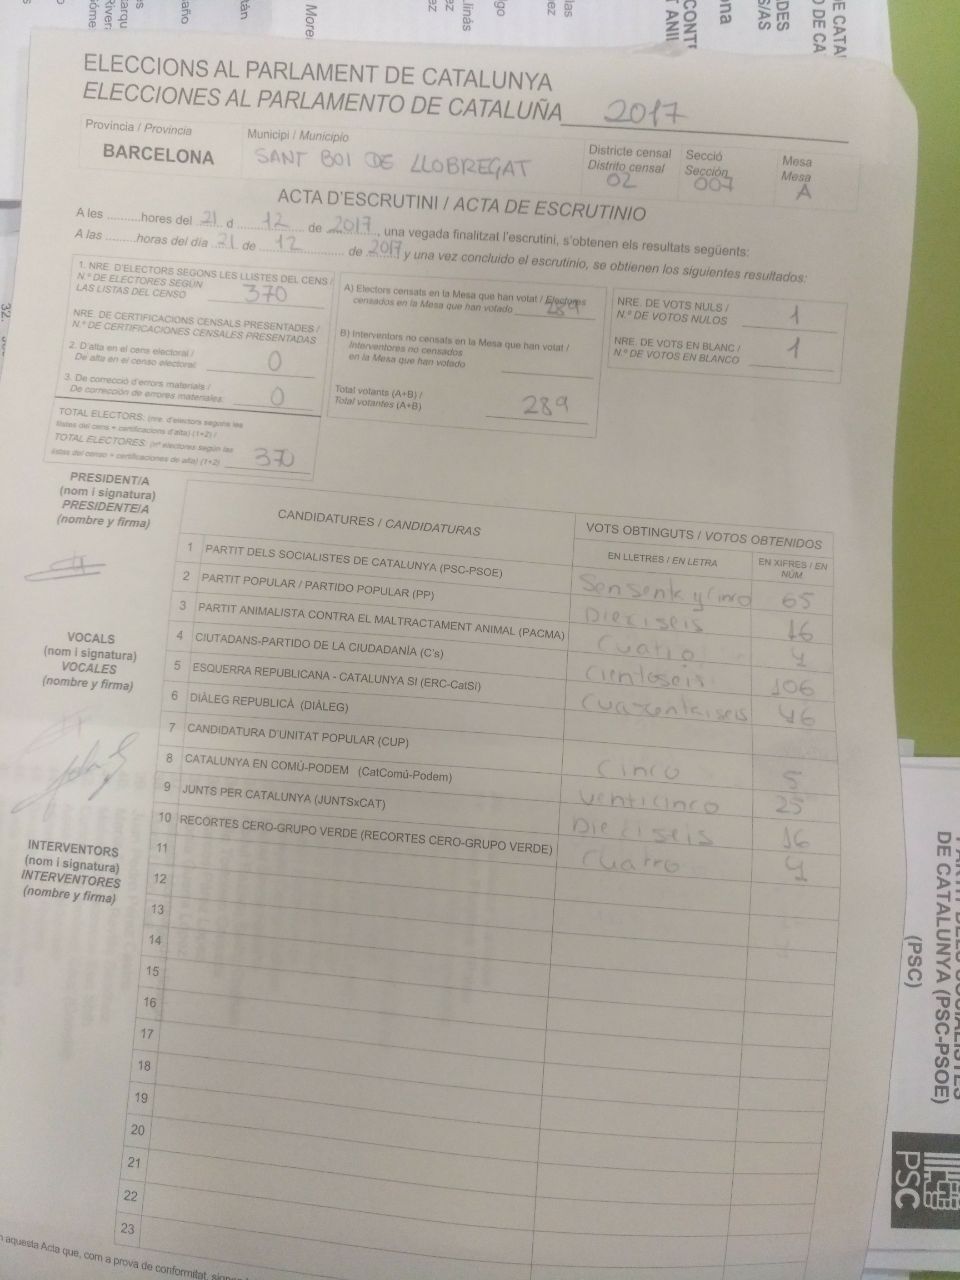 ELECCIONS AL PARLAMENT DE CATALUNYA
ELECCIONES AL PARLAMENTO DE CATALUÑA 2017
Província / Provincia
BARCELONA
Municipi / Municipio
SANT BOI DE LLOBREGAT
Districte censal
Distrito censal
02
Secció
Sección
007
Mesa
Mesa
A
ACTA D'ESCRUTINI / ACTA DE ESCRUTINIO
A les ..........hores del 21 d 12 de 2017, una vegada finalitzat l'escrutini, s'obtenen els resultats següents:
A las .........horas del día 21 de 12 de 2017 y una vez concluido el escrutinio, se obtienen los siguientes resultados:
1. NRE. D'ELECTORS SEGONS LES LLISTES DEL CENS /
N.º DE ELECTORES SEGÚN
LAS LISTAS DEL CENSO 370
NRE. DE CERTIFICACIONS CENSALS PRESENTADES /
N.º DE CERTIFICACIONES CENSALES PRESENTADAS
2. D'alta en el cens electoral /
De alta en el censo electoral: 0
3. De correcció d'errors materials /
De corrección de errores materiales: 0
TOTAL ELECTORS: (nre. d'electors segons les
llistes del cens + certificacions d'alta) (1+2) /
TOTAL ELECTORES: (nº electores según las
listas del censo + certificaciones de alta) (1+2) 370
A) Electors censats en la Mesa que han votat / Electores
censados en la Mesa que han votado 289
B) Interventors no censats en la Mesa que han votat /
Interventores no censados
en la Mesa que han votado
Total votants (A+B) /
Total votantes (A+B) 289
NRE. DE VOTS NULS /
N.º DE VOTOS NULOS 1
NRE. DE VOTS EN BLANC /
N.º DE VOTOS EN BLANCO 1
PRESIDENT/A
(nom i signatura)
PRESIDENTE/A
(nombre y firma)
VOCALS
(nom i signatura)
VOCALES
(nombre y firma)
INTERVENTORS
(nom i signatura)
INTERVENTORES
(nombre y firma)
CANDIDATURES / CANDIDATURAS
VOTS OBTINGUTS / VOTOS OBTENIDOS
EN LLETRES / EN LETRA
EN XIFRES / EN
NÚM
1 PARTIT DELS SOCIALISTES DE CATALUNYA (PSC-PSOE) 65
2 PARTIT POPULAR / PARTIDO POPULAR (PP) Dieciseis 16
3 PARTIT ANIMALISTA CONTRA EL MALTRACTAMENT ANIMAL (PACMA) Cuatro 4
4 CIUTADANS-PARTIDO DE LA CIUDADANÍA (C's) Cientoseis 106
5 ESQUERRA REPUBLICANA - CATALUNYA SI (ERC-CatSí) Cuarentaiseis 46
6 DIÀLEG REPUBLICÀ (DIÀLEG)
7 CANDIDATURA D'UNITAT POPULAR (CUP) Cinco 5
8 CATALUNYA EN COMÚ-PODEM (CatComú-Podem) Venticinco 25
9 JUNTS PER CATALUNYA (JUNTSxCAT) Dieciseis 16
10 RECORTES CERO-GRUPO VERDE (RECORTES CERO-GRUPO VERDE) Cuatro 4
11
12
13
14
15
16
17
18
19
20
21
22
23
aquesta Acta que, com a prova de conformitat,
DE CATALUNYA (PSC-PSOE)
(PSC)
PSC